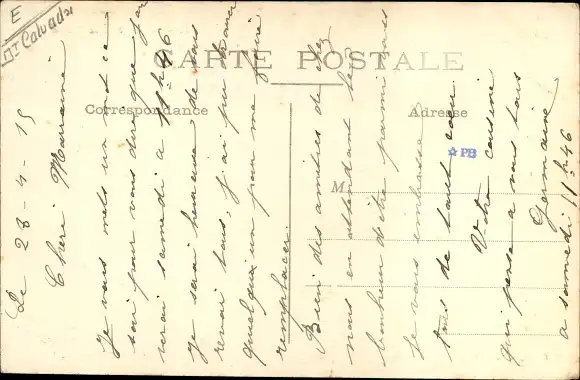 E
Dt Calvados
CARTE POSTALE
Correspondance
Adresse
M
PB
Le 28-4-15
Cheri Marraine
Je vous mets un mot ce
soir pour vous dire que j'ar
riverai samedi a 11h46
je serai heureuse de vous
revoir tous, j'ai pu trouver
quelqu'un pour me faire
remplacer.
Bien des amitiés de chez
nous en attendant le
bonheur d'être parmi vous
Je vous embrasse
tous de tout cœur
Votre cousine
qui pense a vous tous
Germaine
a samedi 11h46